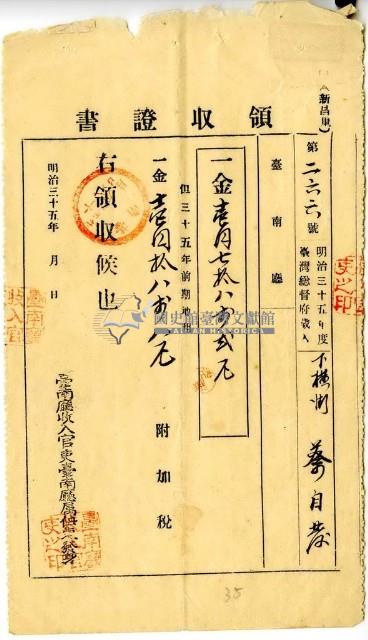 領收證書
（新昌里）
第二六六號
明治三十五年度
臺灣總督府歲入
下橫街 蔡自發
臺南廳
一金壹円七拾八錢貳厘
但三十五年前期地租
一金壹円拾八錢八厘 附加稅
右領收候也
明治三十五年 月 日
臺南廳收入官吏臺南廳屬
國史館臺灣文獻館
TAIWAN HISTORICA
35